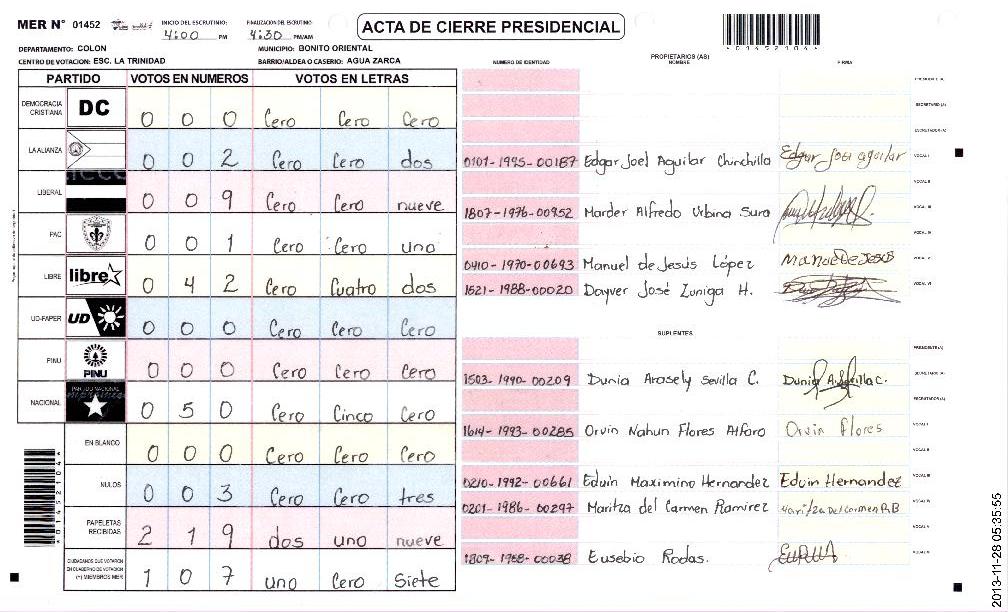 MER N° 01452
INICIO DEL ESCRUTINIO: 4:00 PM
FINALIZACIÓN DEL ESCRUTINIO: 4:30 PM/AM
ACTA DE CIERRE PRESIDENCIAL
DEPARTAMENTO: COLON
MUNICIPIO: BONITO ORIENTAL
CENTRO DE VOTACION: ESC. LA TRINIDAD
BARRIO/ALDEA O CASERIO: AGUA ZARCA
PARTIDO VOTOS EN NUMEROS VOTOS EN LETRAS
DEMOCRACIA CRISTIANA DC 0 0 0 Cero Cero Cero
LA ALIANZA 0 0 2 Cero Cero dos
LIBERAL 0 0 9 Cero Cero nueve
PAC 0 0 1 Cero Cero uno
LIBRE libre 0 4 2 Cero Cuatro dos
UD-FAPER UD 0 0 0 Cero Cero Cero
PINU PINU 0 0 0 Cero Cero Cero
NACIONAL PARTIDO NACIONAL 0 5 0 Cero Cinco Cero
EN BLANCO 0 0 0 Cero Cero Cero
NULOS 0 0 3 Cero Cero tres
PAPELETAS RECIBIDAS 2 1 9 dos uno nueve
CIUDADANOS QUE VOTARON EN CUADERNO DE VOTACION (+) MIEMBROS MER 1 0 7 uno Cero Siete
NUMERO DE IDENTIDAD
PROPIETARIOS (AS)
NOMBRE
FIRMA
PRESIDENTE (A)
SECRETARIO (A)
ESCRUTADOR (A)
0101-1995-00187 Edgar Joel Aguilar Chinchilla Edgar Joel aguilar VOCAL I
VOCAL II
1807-1976-00952 Marder Alfredo Urbina Sura VOCAL III
VOCAL IV
0410-1970-00693 Manuel de Jesús López Manuel De Jesus VOCAL V
1621-1988-00020 Dayver José Zuniga H. VOCAL VI
SUPLENTES
PRESIDENTE (A)
1503-1990-00209 Dunia Arasely Sevilla C. Dunia A. Sevilla C. SECRETARIO (A)
ESCRUTADOR (A)
1614-1993-00285 Orvin Nahun Flores Alfaro Orvin flores VOCAL I
VOCAL II
0210-1992-00661 Eduin Maximino Hernandez Eduin Hernandez VOCAL III
0201-1986-00297 Maritza del Carmen Ramirez Maritza Del Carmen R.B VOCAL IV
VOCAL V
1809-1958-00038 Eusebio Rodas.
01452104
2013-11-28 05:35:55